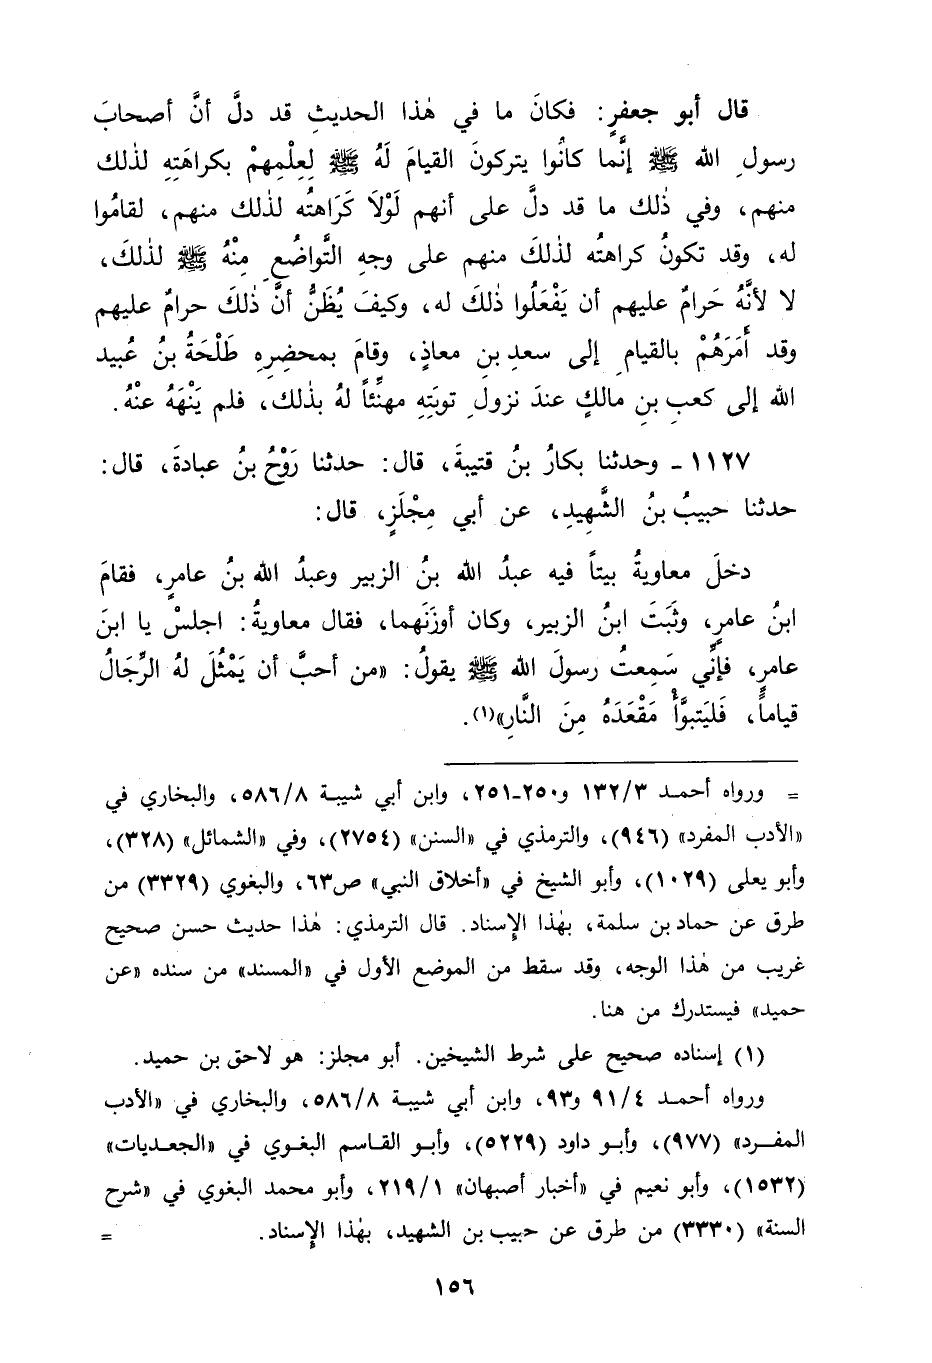 قال أبو جعفرٍ: فكانَ ما في هٰذا الحديثِ قد دلَّ أنَّ أصحابَ
رسولِ الله ﷺ إنَّما كانُوا يتركونَ القيامَ لَهُ ﷺ لِعِلْمِهِمْ بكراهَتِهِ لذٰلك
منهم، وفي ذٰلك ما قد دلَّ على أنهم لَوْلَا كَرَاهتُه لذٰلك منهم، لقامُوا
له، وقد تكونُ كراهتُه لذٰلكَ منهم على وجهِ التَّواضُعِ مِنْهُ ﷺ لذٰلكَ،
لا لأنَّهُ حَرامٌ عليهم أن يَفْعَلُوا ذٰلكَ له، وكيفَ يُظَنُّ أنَّ ذٰلكَ حرامٌ عليهم
وقد أَمَرَهُمْ بالقيامِ إلى سعدِ بنِ معاذٍ، وقامَ بمحضرِهِ طَلْحَةُ بنُ عُبيد
الله إلى كعبِ بنِ مالكٍ عندَ نزولِ توبتِهِ مهنِّئاً لهُ بذٰلك، فلم يَنْهَهُ عنْهُ.
١١٢٧ - وحدثنا بكارُ بنُ قتيبةَ، قال: حدثنا رَوْحُ بنُ عبادةَ، قال:
حدثنا حبيبُ بنُ الشَّهِيدِ، عن أبي مِجْلَزٍ، قال:
دخلَ معاويةُ بيتاً فيه عبدُ الله بنُ الزبير وعبدُ الله بنُ عامرٍ، فقامَ
ابنُ عامرٍ، وثَبَتَ ابنُ الزبير، وكان أوزَنَهما، فقال معاويةُ: اجلسْ يا ابنَ
عامرٍ، فإنِّي سَمِعتُ رسولَ الله ﷺ يقولُ: «من أحبَّ أن يَمْثُلَ لهُ الرِّجَالُ
قياماً، فَليَتبوَّأْ مَقْعَدَهُ مِنَ النَّارِ»(١).
= ورواه أحمد ١٣٢/٣ و٢٥٠-٢٥١، وابن أبي شيبة ٥٨٦/٨، والبخاري في
«الأدب المفرد» (٩٤٦)، والترمذي في «السنن» (٢٧٥٤)، وفي «الشمائل» (٣٢٨)،
وأبو يعلى (١٠٢٩)، وأبو الشيخ في «أخلاق النبي» ص٦٣، والبغوي (٣٣٢٩) من
طرق عن حماد بن سلمة، بهٰذا الإِسناد. قال الترمذي: هٰذا حديث حسن صحيح
غريب من هٰذا الوجه، وقد سقط من الموضع الأول في «المسند» من سنده «عن
حميد» فيستدرك من هنا.
(١) إسناده صحيح على شرط الشيخين. أبو مجلز: هو لاحق بن حميد.
ورواه أحمد ٩١/٤ و٩٣، وابن أبي شيبة ٥٨٦/٨، والبخاري في «الأدب
المفرد» (٩٧٧)، وأبو داود (٥٢٢٩)، وأبو القاسم البغوي في «الجعديات»
(١٥٣٢)، وأبو نعيم في «أخبار أصبهان» ٢١٩/١، وأبو محمد البغوي في «شرح
السنة» (٣٣٣٠) من طرق عن حبيب بن الشهيد، بهٰذا الإِسناد. =
١٥٦